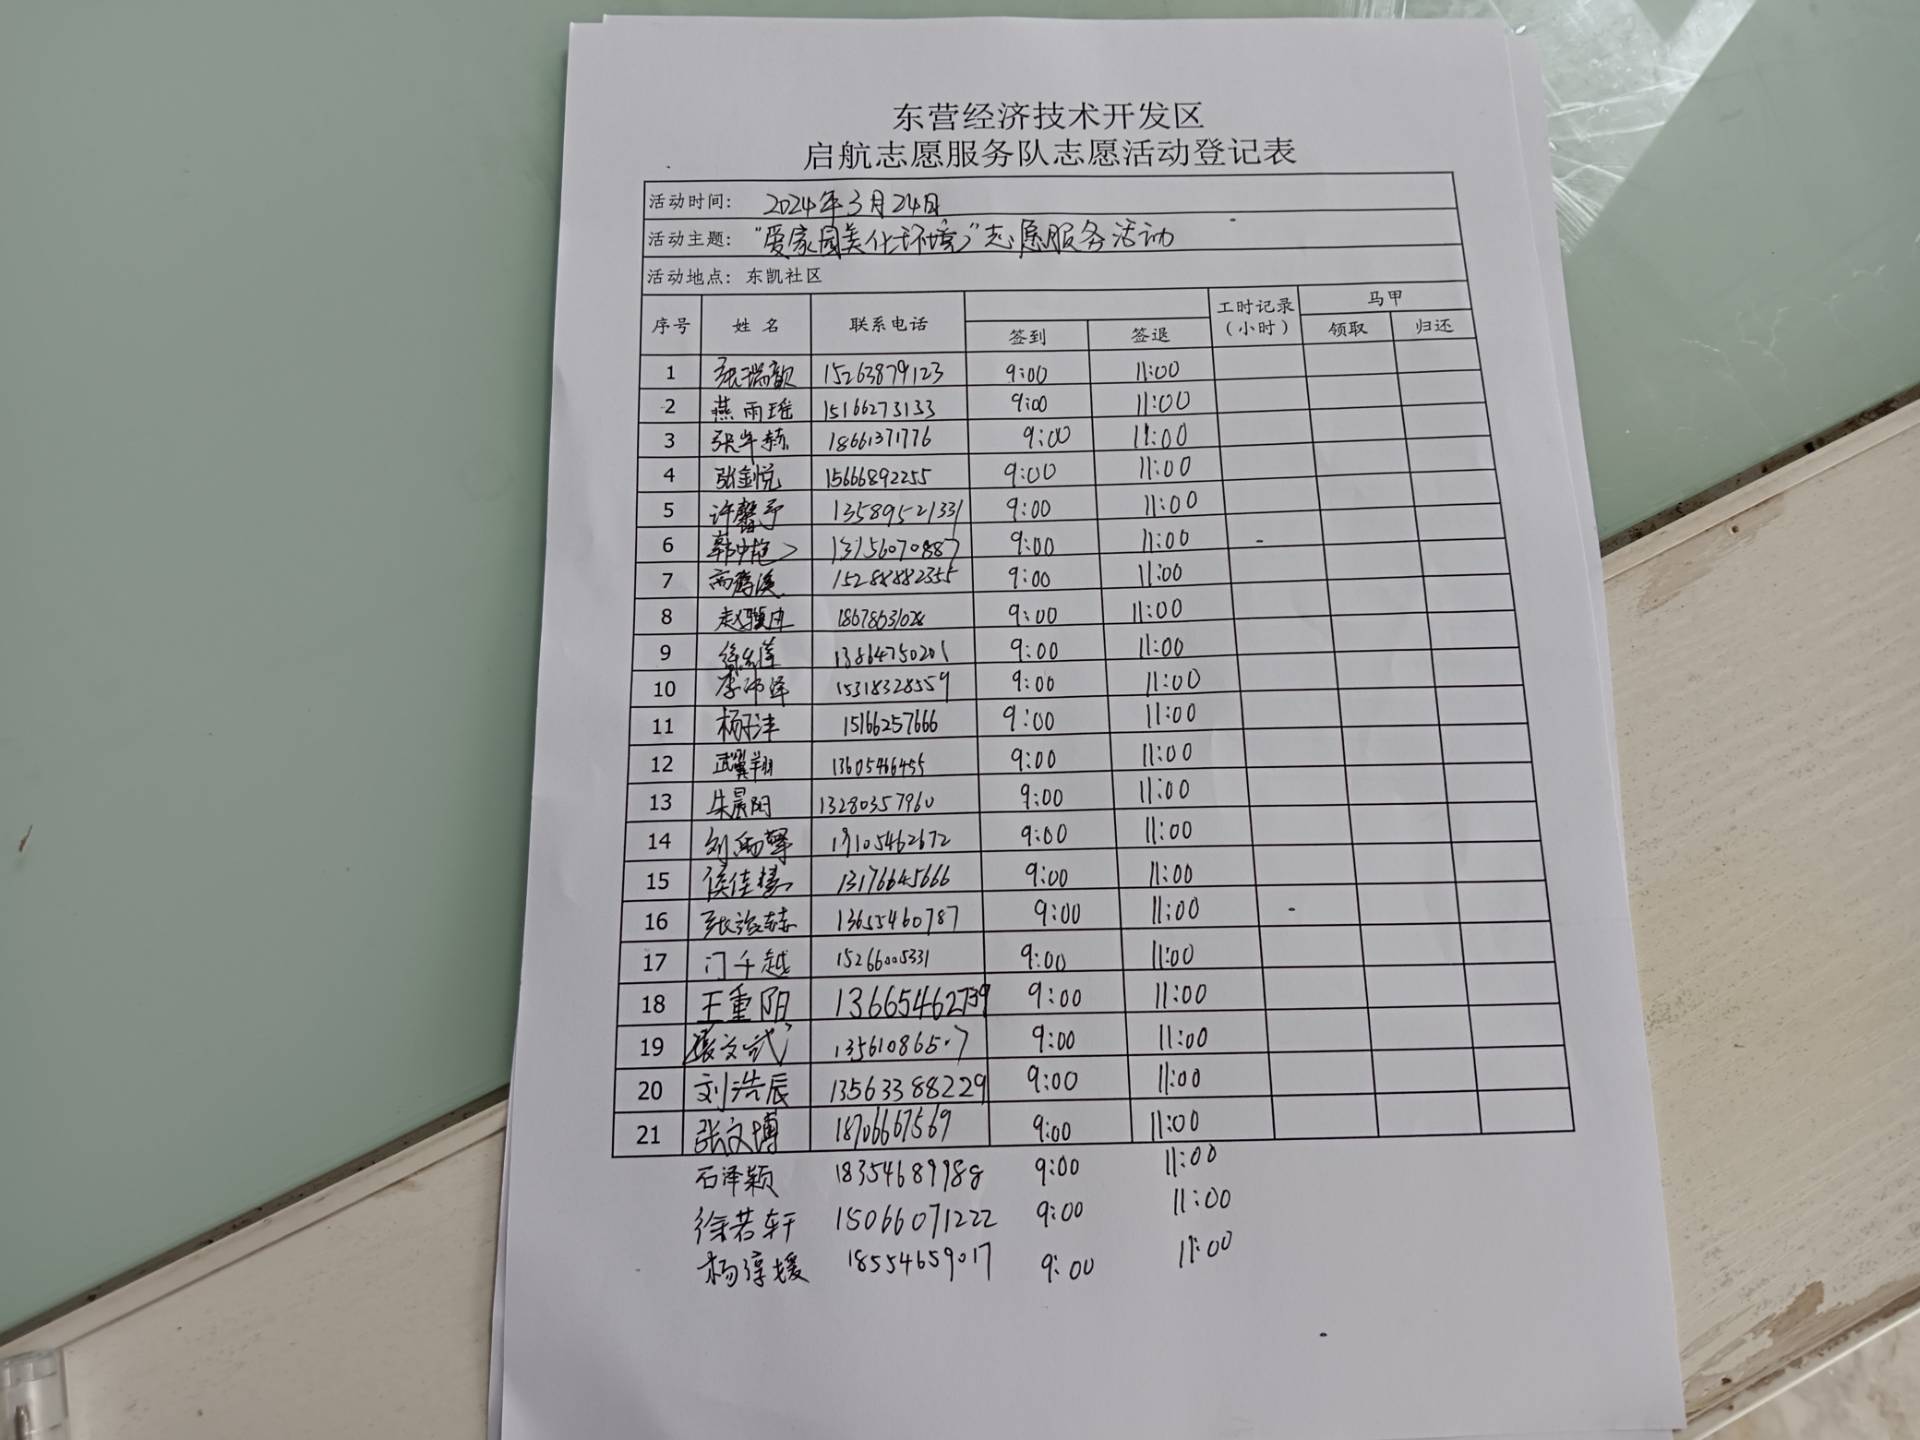 东营经济技术开发区
启航志愿服务队志愿活动登记表
活动时间: 2024年3月24日
活动主题: "爱家园美化环境"志愿服务活动
活动地点: 东凯社区
序号 姓名 联系电话 签到 签退 工时记录(小时) 马甲 领取 归还
1 张瑞歆 15263879123 9:00 11:00
2 燕雨瑶 15166273133 9:00 11:00
3 18661371776 9:00 11:00
4 张金悦 15666892255 9:00 11:00
5 许馨予 13589521331 9:00 11:00
6 13156070887 9:00 11:00
7 15288882355 9:00 11:00
8 18678631028 9:00 11:00
9 13864750201 9:00 11:00
10 15318328559 9:00 11:00
11 15166257666 9:00 11:00
12 武翼翔 13605466455 9:00 11:00
13 朱晨阳 13280357960 9:00 11:00
14 19105462672 9:00 11:00
15 13176645666 9:00 11:00
16 13655460787 9:00 11:00
17 门千越 15266005331 9:00 11:00
18 王重阳 13665462739 9:00 11:00
19 9:00 11:00
20 刘浩辰 13563388229 9:00 11:00
21 张文博 18706667569 9:00 11:00
石泽颖 18354689988 9:00 11:00
徐若轩 15066071222 9:00 11:00
杨淳媛 18554659017 9:00 11:00